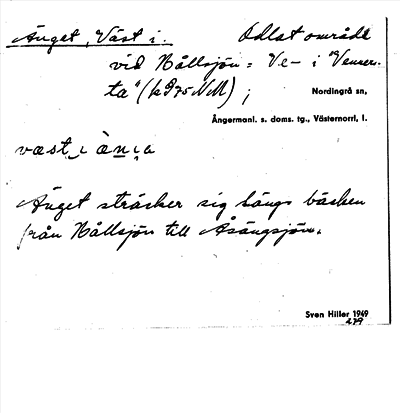 Änget, Väst i. Odlat område
vid Hållsjön = Ve- i "Vemer-
ta" (k 975 NM);
Nordingrå sn,
Ångermanl. s. doms. tg., Västernorrl, l.
væst i
Änget sträcker sig längs bäcken
från Hållsjön till Åsängsjön.
Sven Hiller 1949
479